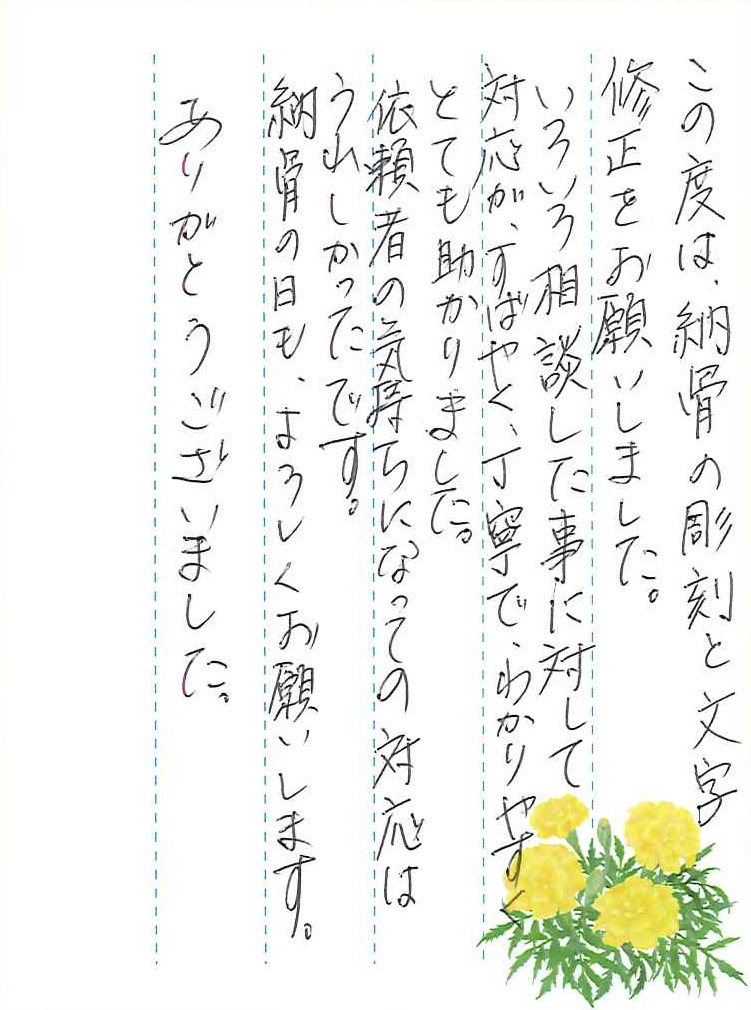 この度は、納骨の彫刻と文字
修正をお願いしました。
いろいろ相談した事に対して
対応が、すばやく、丁寧で、わかりやすく
とても助かりました。
依頼者の気持ちになっての対応は
うれしかったです。
納骨の日も、よろしくお願いします。
ありがとうございました。